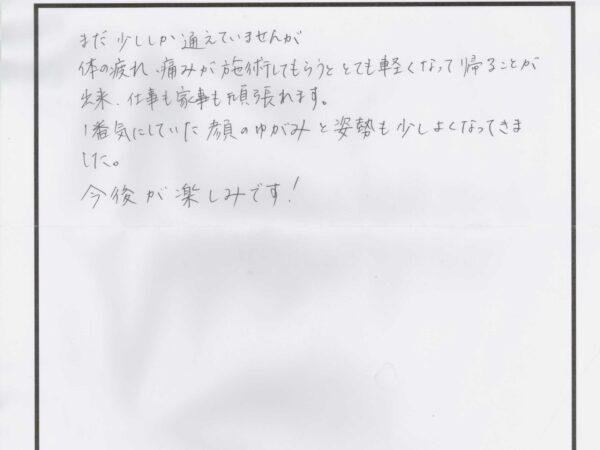 まだ少ししか通えていませんが
体の疲れ、痛みが施術してもらうととても軽くなって帰ることが
出来、仕事も家事も頑張れます。
1番気にしていた顔のゆがみと姿勢も少しよくなってきま
した。
今後が楽しみです!